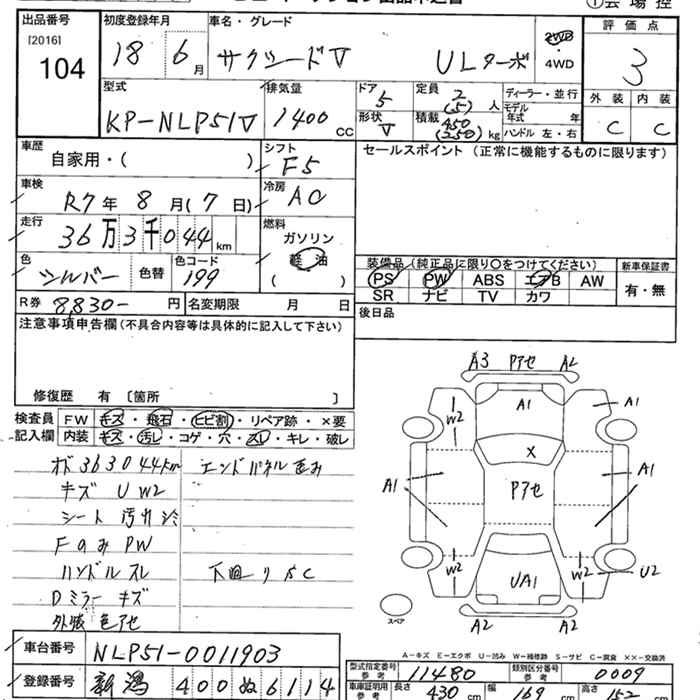 ①会 場 控
出品番号
[2016]
104
初度登録年月
18 6月
車名・グレード
サクシードV ULターボ
2WD
・
4WD
評 価 点
3
外 装 内 装
C C
型式
KP-NLP51V
排気量
1400 CC
ドア
5
形状
V
定員
2
(5) 人
積載 450
(250) kg
ディーラー・並行
モデル
年式 年
ハンドル 左・右
車歴
自家用・( )
シフト
F5
セールスポイント (正常に機能するものに限ります)
車検
R7 年 8 月( 7 日)
冷房
AC
走行
36万3千044 km
燃料
ガソリン
軽 油
( )
色
シルバー
色替
色コード
199
装備品(純正品に限り〇をつけてください)
PS PW ABS エアB AW
SR ナビ TV カワ
新車保証書
有・無
R券 8,830- 円 名変期限 月 日
後日品
注意事項申告欄(不具合内容等は具体的に記入して下さい)
修復歴 有 〔箇所 〕
検査員
記入欄
FW キズ・飛石・ヒビ割・リペア跡・×要
内装 キズ・汚レ・コゲ・穴・スレ・キレ・破レ
オド363044km エンドパネル歪み
キズ U W2
シート 汚れ
Fのみ PW
ハンドル スレ 下廻りSC
Dミラー キズ
外装 色アセ
A3 アセ A2
A1
W2
A1
A1
X
アセ
A1
W2
UA1
W2
U2
A2 A2
スペア
A-キズ E-エクボ U-凹み W-補修跡 S-サビ C-腐食 ××-交換済
車台番号 NLP51-0011903
登録番号 新潟 400 ぬ 6114
型式指定番号
参 考
11480
類別区分番号
参 考
0009
車庫証明用
参 考
長さ 430 cm 幅 169 cm 高さ 152 cm